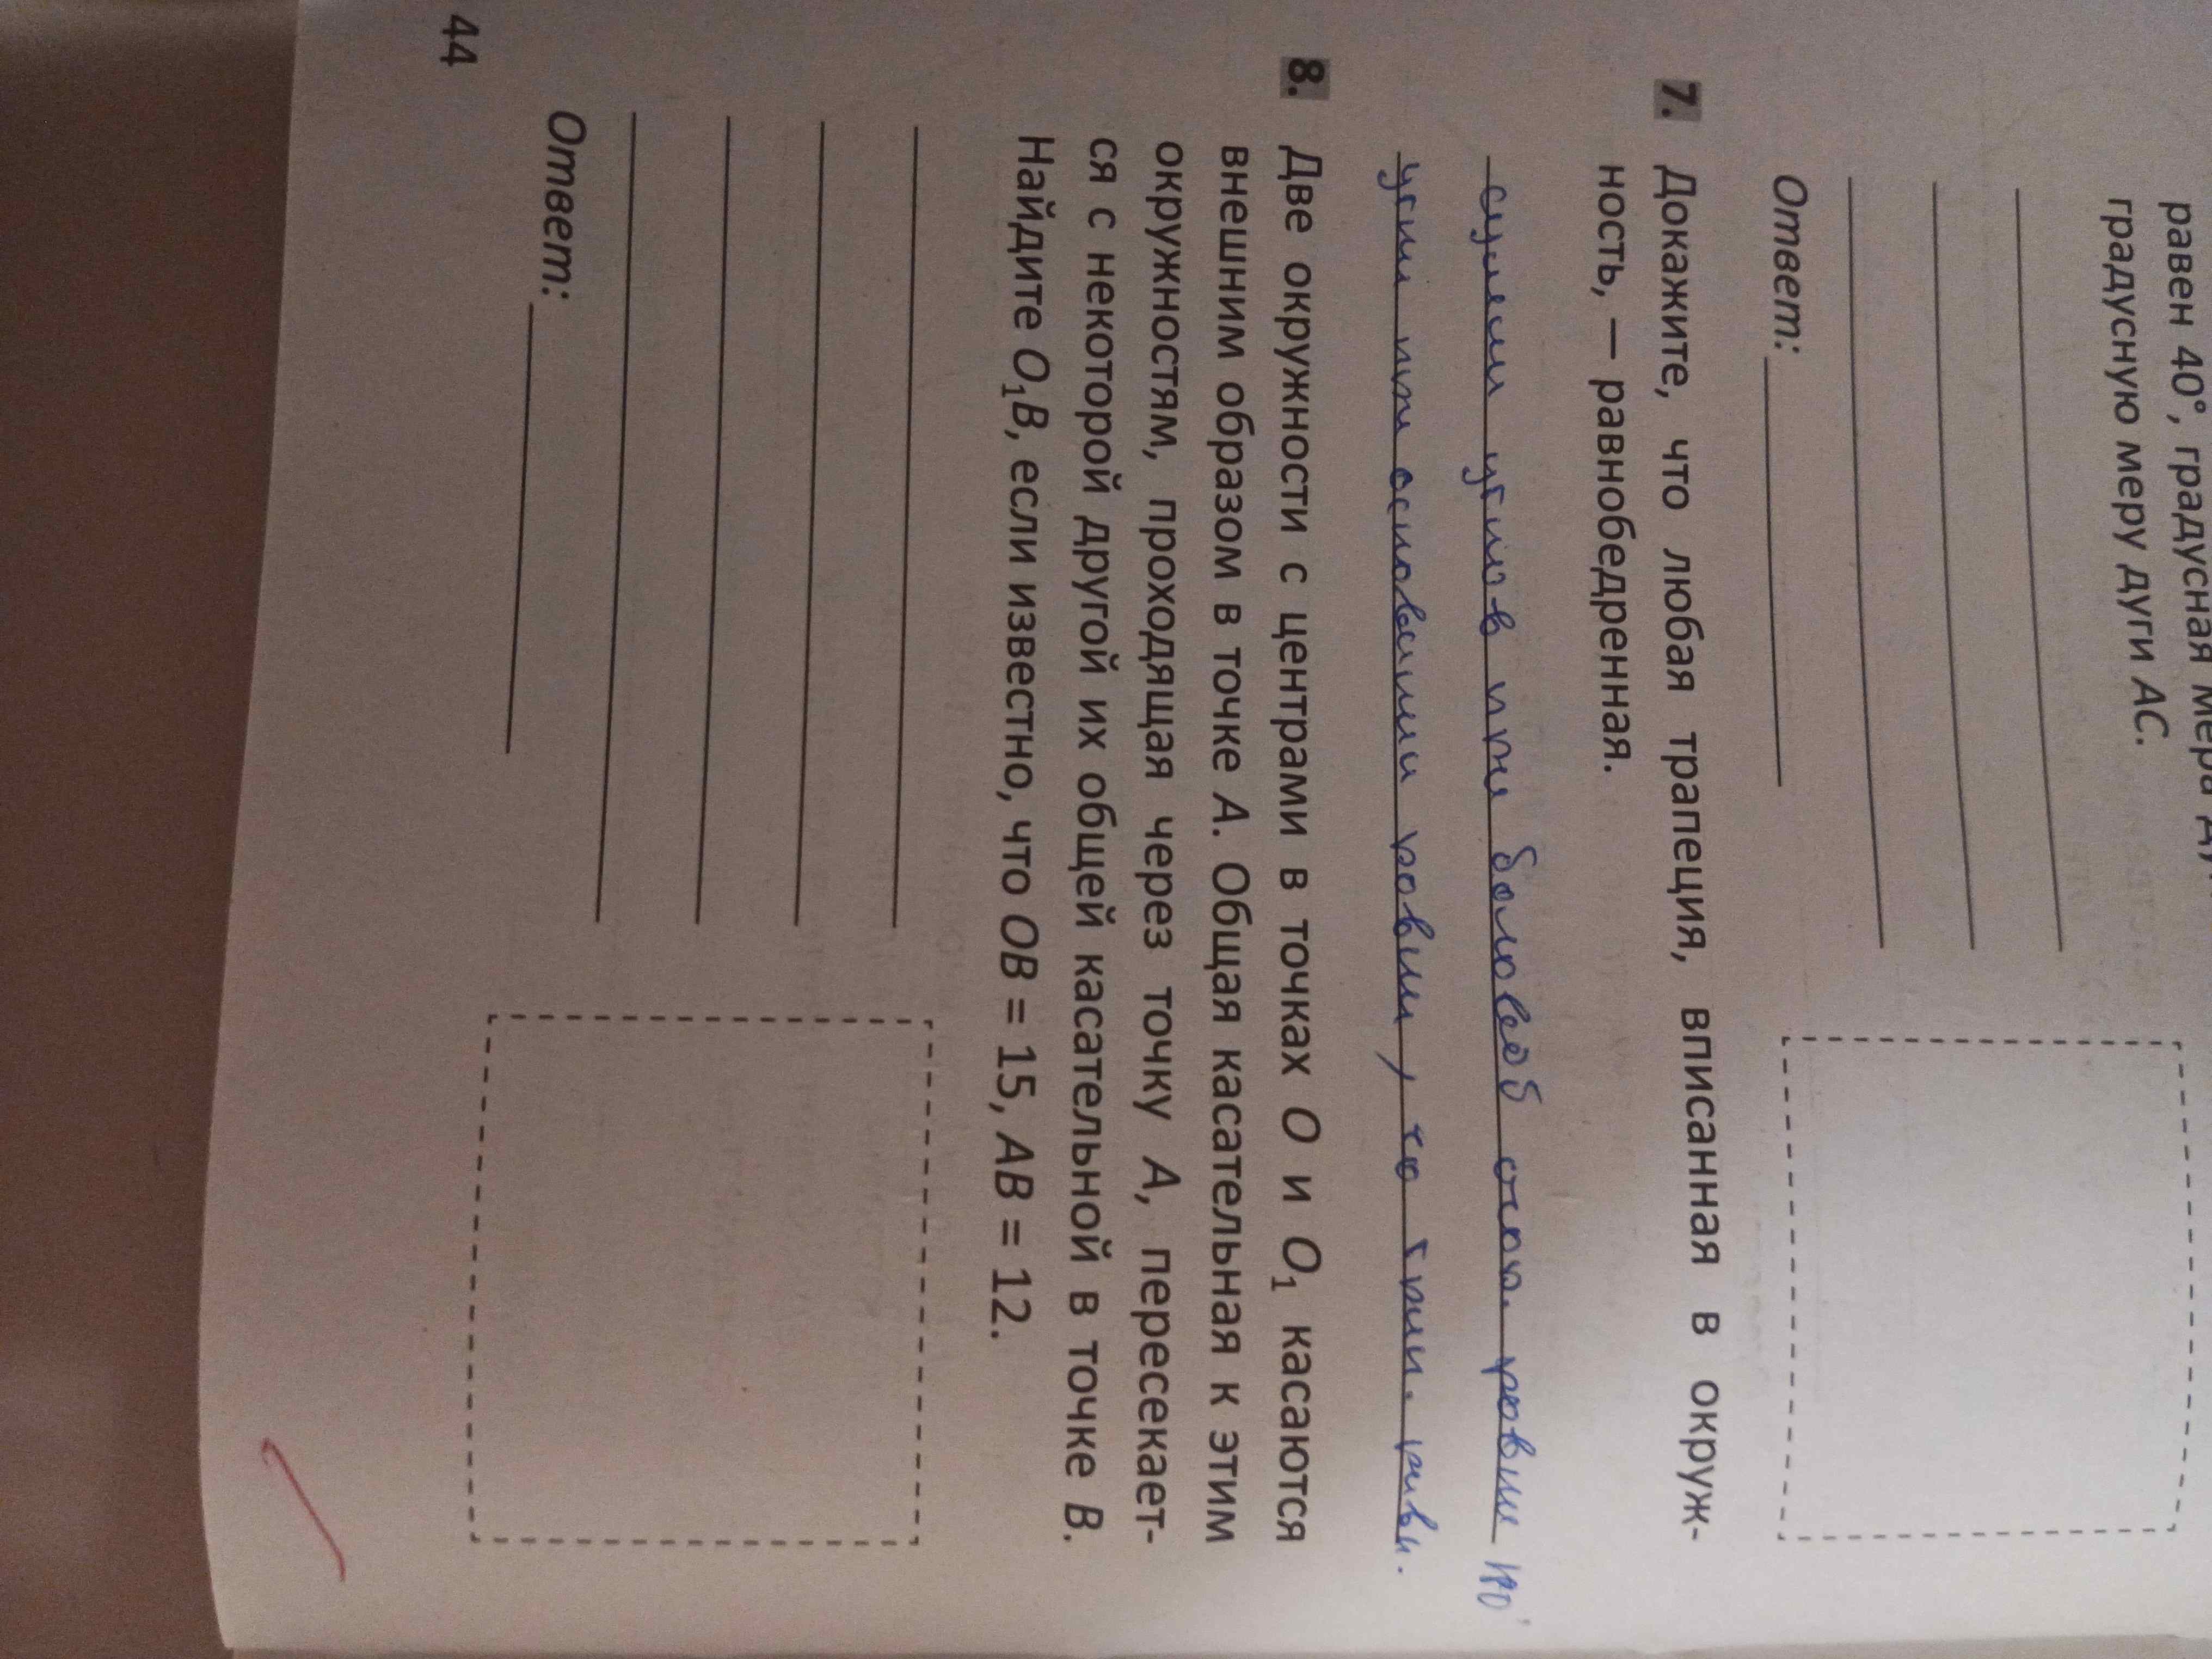 равен 40°, градусная мера
градусную меру дуги AC.
Ответ:
7. Докажите, что любая трапеция, вписанная в окруж-
ность, — равнобедренная.
суммы углов при боковой стор. равны 180°
углы при основании равны, то трап. равн.
8. Две окружности с центрами в точках O и O₁ касаются
внешним образом в точке A. Общая касательная к этим
окружностям, проходящая через точку A, пересекает-
ся с некоторой другой их общей касательной в точке B.
Найдите O₁B, если известно, что OB = 15, AB = 12.
Ответ:
44